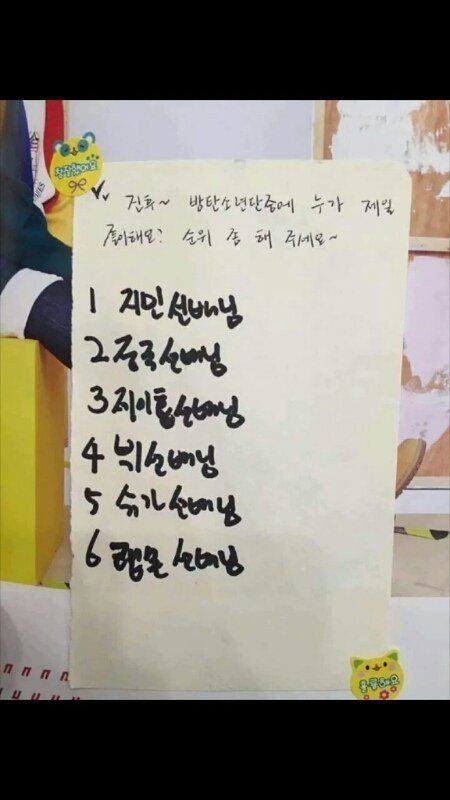 참잘했어요
진화~ 방탄소년단중에 누가 제일
좋아해요? 순위 좀 해 주세요~
1 지민선배님
2 정국선배님
3 제이홉선배님
4 뷔선배님
5 슈가선배님
6 랩몬선배님
훌륭해요